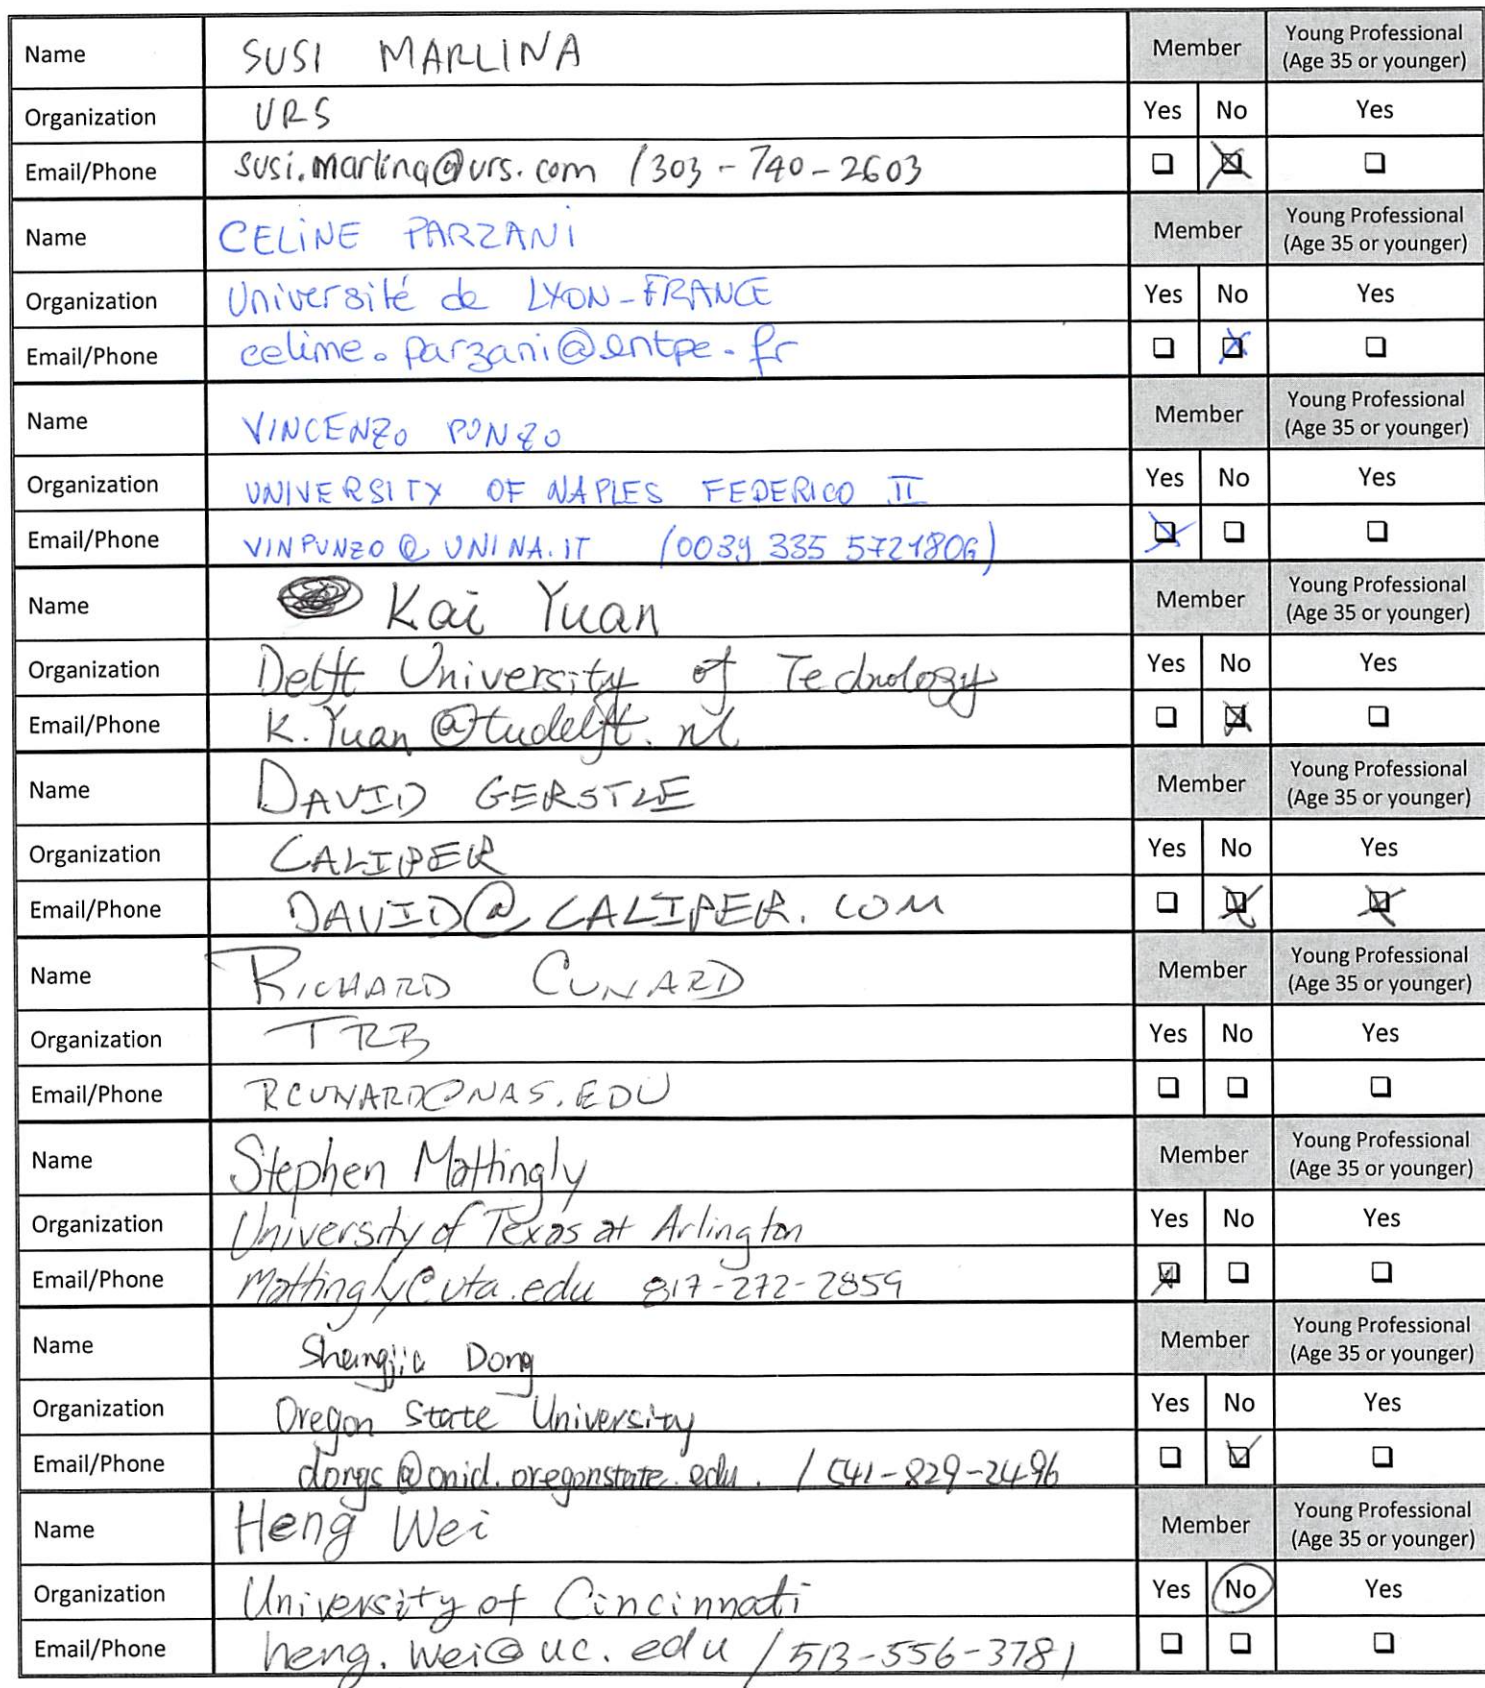 Name SUSI MARLINA Member Young Professional
(Age 35 or younger)
Organization URS Yes No Yes
Email/Phone susi.marlina@urs.com / 303-740-2603 ❑ ☒ ❑
Name CELINE PARZANI Member Young Professional
(Age 35 or younger)
Organization Université de LYON-FRANCE Yes No Yes
Email/Phone celine.parzani@entpe.fr ❑ ☒ ❑
Name VINCENZO PUNZO Member Young Professional
(Age 35 or younger)
Organization UNIVERSITY OF NAPLES FEDERICO II Yes No Yes
Email/Phone VINPUNZO@UNINA.IT (0039 335 5721806) ☒ ❑ ❑
Name Kai Yuan Member Young Professional
(Age 35 or younger)
Organization Delft University of Technology Yes No Yes
Email/Phone K.Yuan@tudelft.nl ❑ ☒ ❑
Name DAVID GERSTLE Member Young Professional
(Age 35 or younger)
Organization CALIPER Yes No Yes
Email/Phone DAVID@CALIPER.COM ❑ ☒ ☒
Name RICHARD CUNARD Member Young Professional
(Age 35 or younger)
Organization TRB Yes No Yes
Email/Phone RCUNARD@NAS.EDU ❑ ❑ ❑
Name Stephen Mattingly Member Young Professional
(Age 35 or younger)
Organization University of Texas at Arlington Yes No Yes
Email/Phone Mattingly@uta.edu 817-272-2859 ☒ ❑ ❑
Name Shangjia Dong Member Young Professional
(Age 35 or younger)
Organization Oregon State University Yes No Yes
Email/Phone dongs@onid.oregonstate.edu. / 541-829-2496 ❑ ☑ ❑
Name Heng Wei Member Young Professional
(Age 35 or younger)
Organization University of Cincinnati Yes No Yes
Email/Phone heng.wei@uc.edu / 513-556-3781 ❑ ❑ ❑